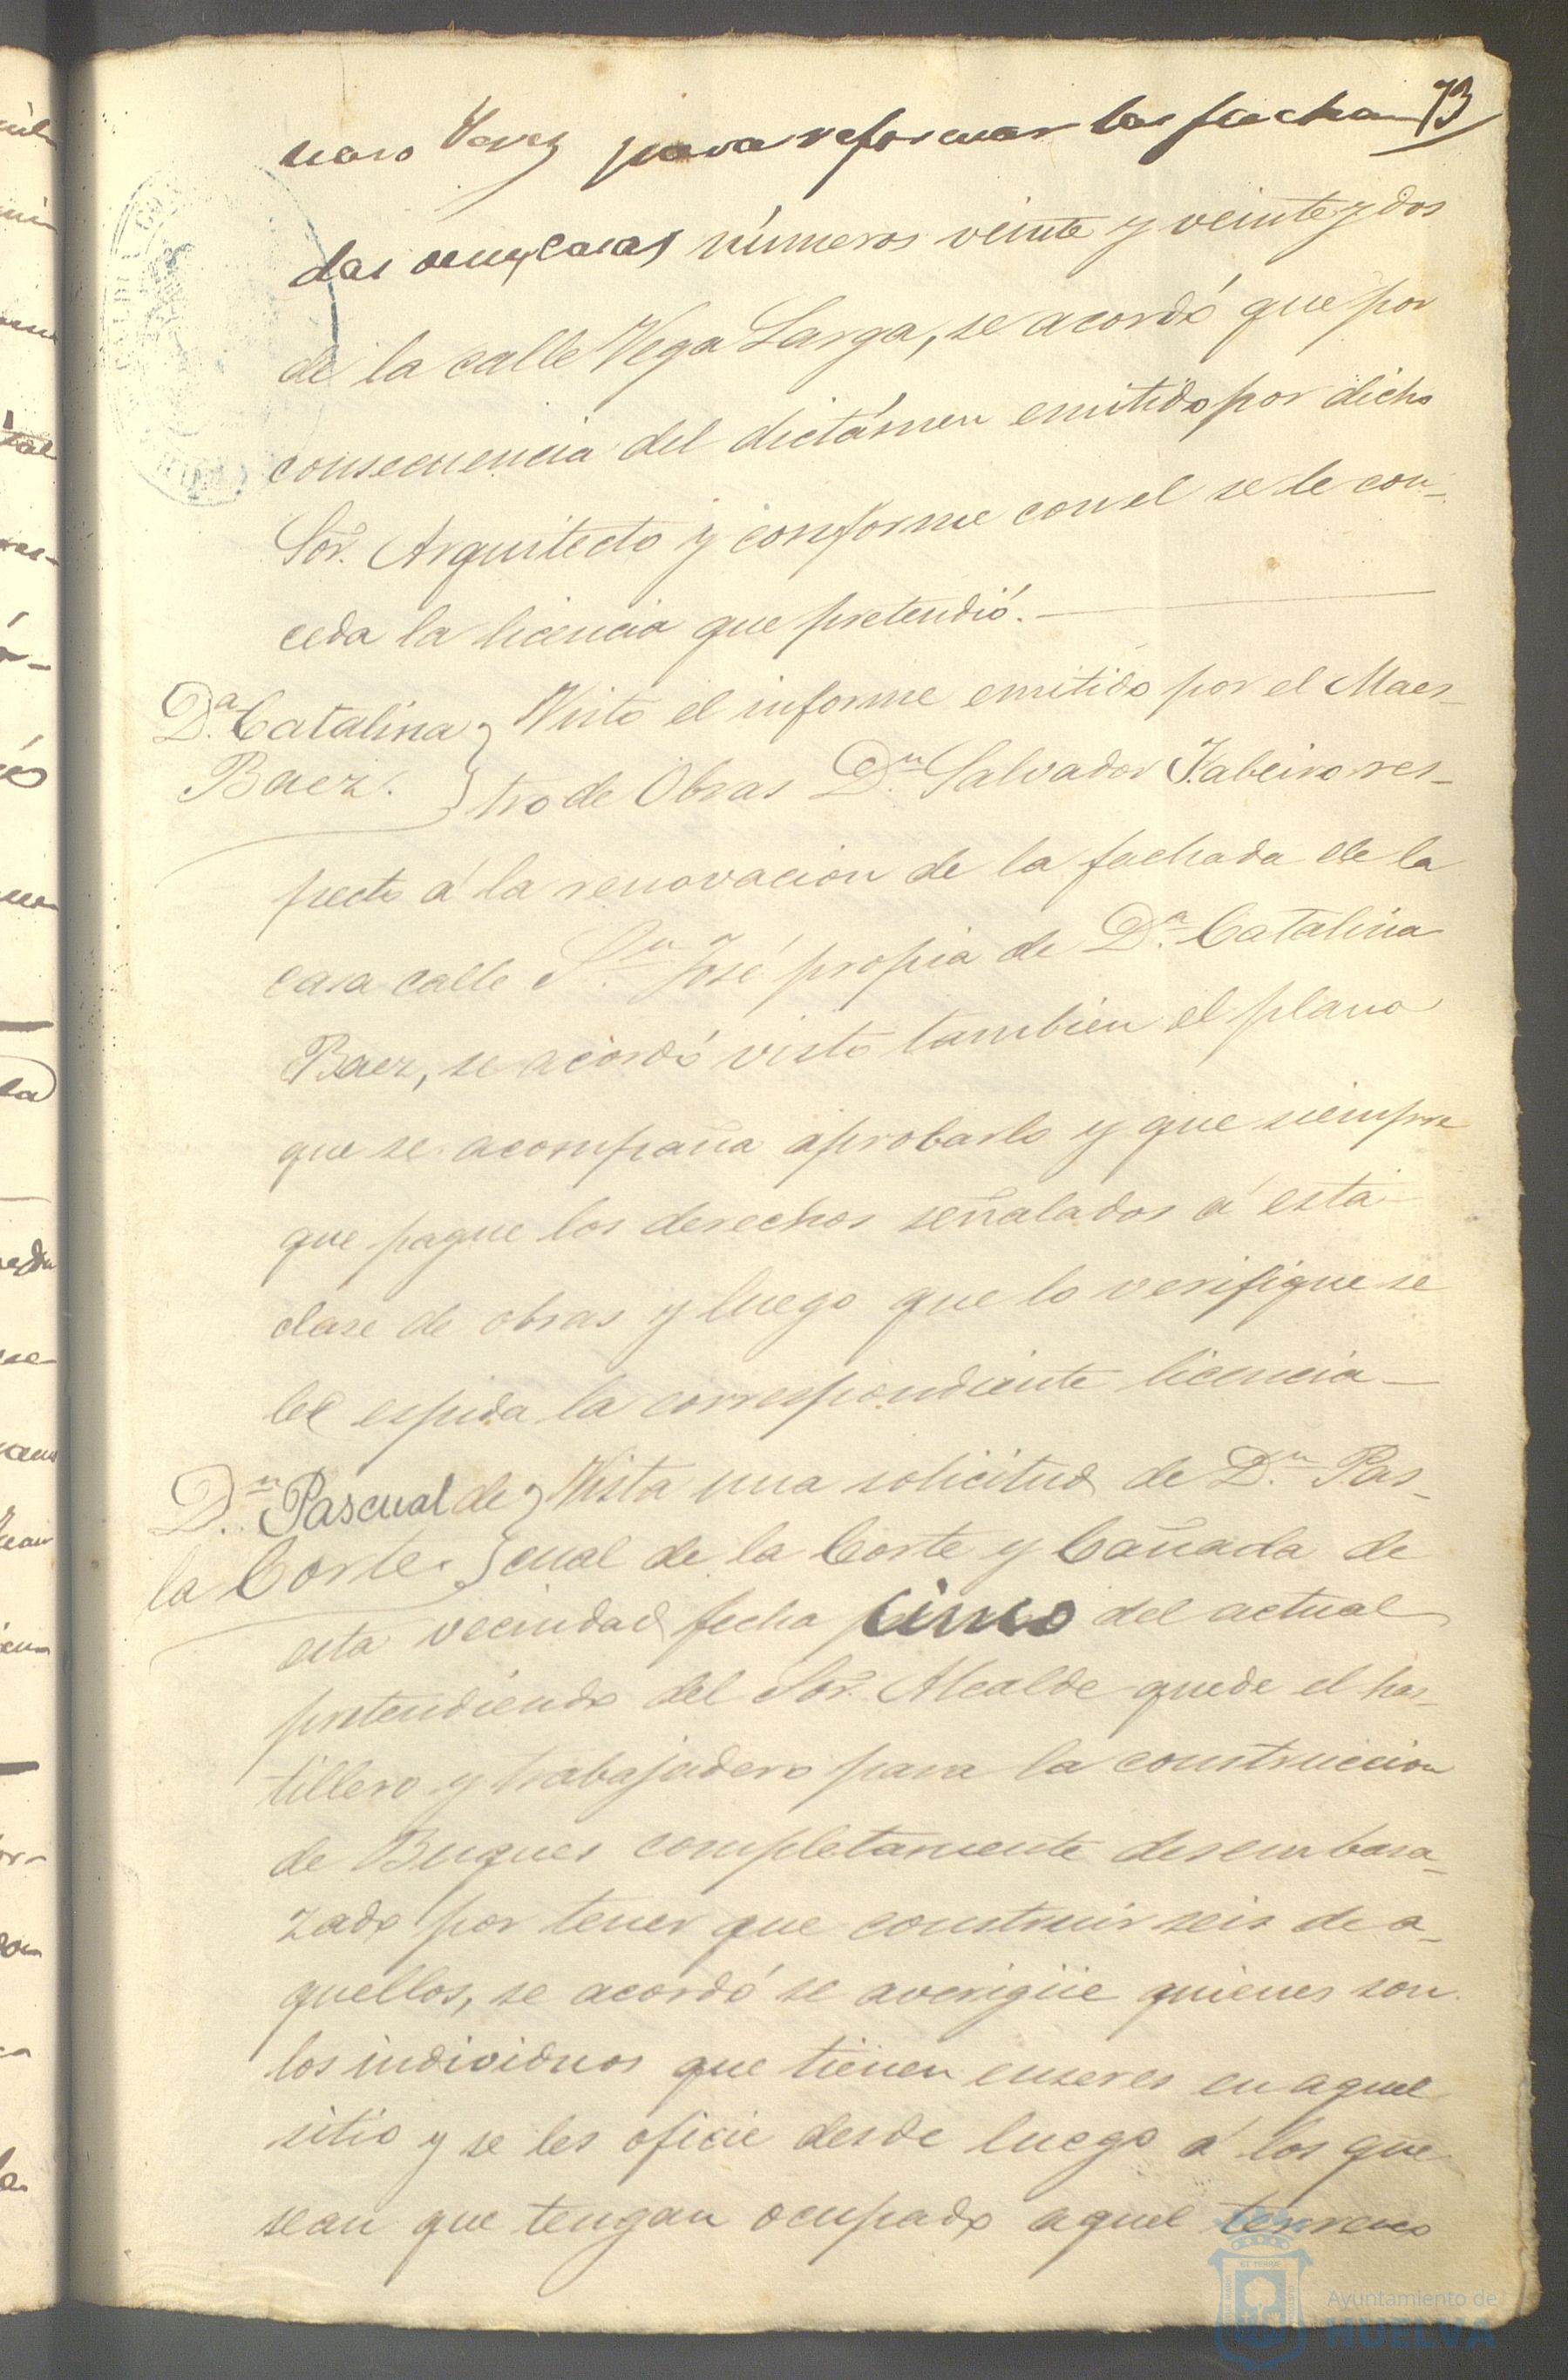 73
naro Perez para reformar las facha-
das de sus casas números veinte y veinte y dos
de la calle Vega Larga, se acordó que por
consecuencia del dictámen emitido por dicho
Sor. Arquitecto y conforme con el se le con-
ceda la licencia que pretendió.
Da. Catalina
Baez.
Visto el informe emitido por el Maes-
tro de Obras Dn. Salvador res-
pecto á la renovacion de la fachada de la
casa calle Sn. José propia de Da. Catalina
Baez, se acordó visto tambien el plano
que se acompaña aprobarlo y que siempre
que pague los derechos señalados á esta
clase de obras y luego que lo verifique se
le espida la correspondiente licencia
Dn. Pascual de
la Corte.
Vista una solicitud de Dn. Pas-
cual de la Corte y Cañada de
esta vecindad fecha cinco del actual
pretendiendo del Sor. Alcalde quede el has-
tillero y trabajadero para la construccion
de Buques completamente desembara-
zado por tener que construir seis de a-
quellos, se acordó se averigüe quienes son
los individuos que tienen enseres en aquel
sitio y se les oficie desde luego á los que
sean que tengan ocupado aquel terreno
Ayuntamiento de
HUELVA